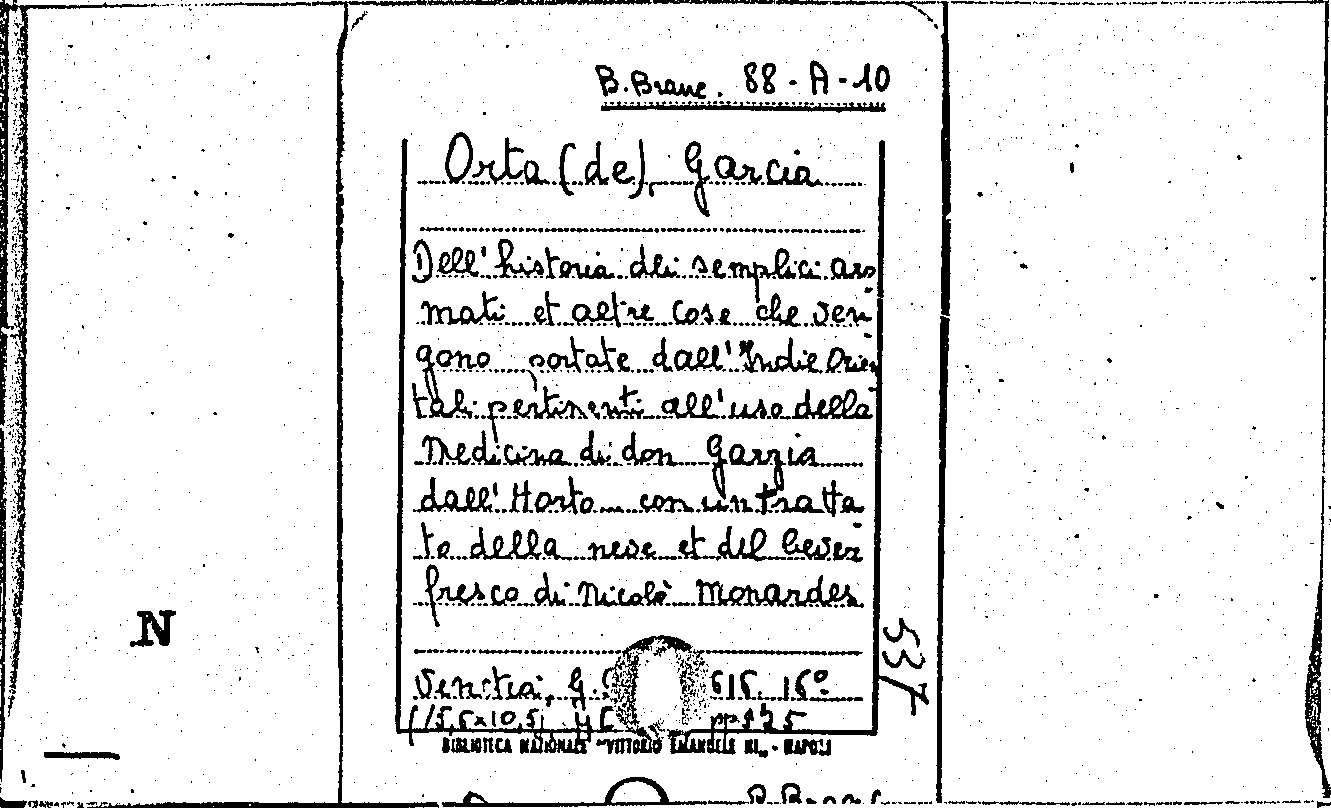 B. Branc. 88-A-10
Orta (de), Garcia
Dell'historia dei semplici aro
mati et altre cose che ven
gono portate dall'Indie Orien
tali pertinenti all'uso della
Medicina di don Garzia
dall'Horto... con un tratta
to della neve et del bever
fresco di Nicolò Monardes
537
N
Venetia, G. 616. 16°
(15,5x10,5) pp. 525
BIBLIOTECA NAZIONALE "VITTORIO EMANUELE III" - NAPOLI